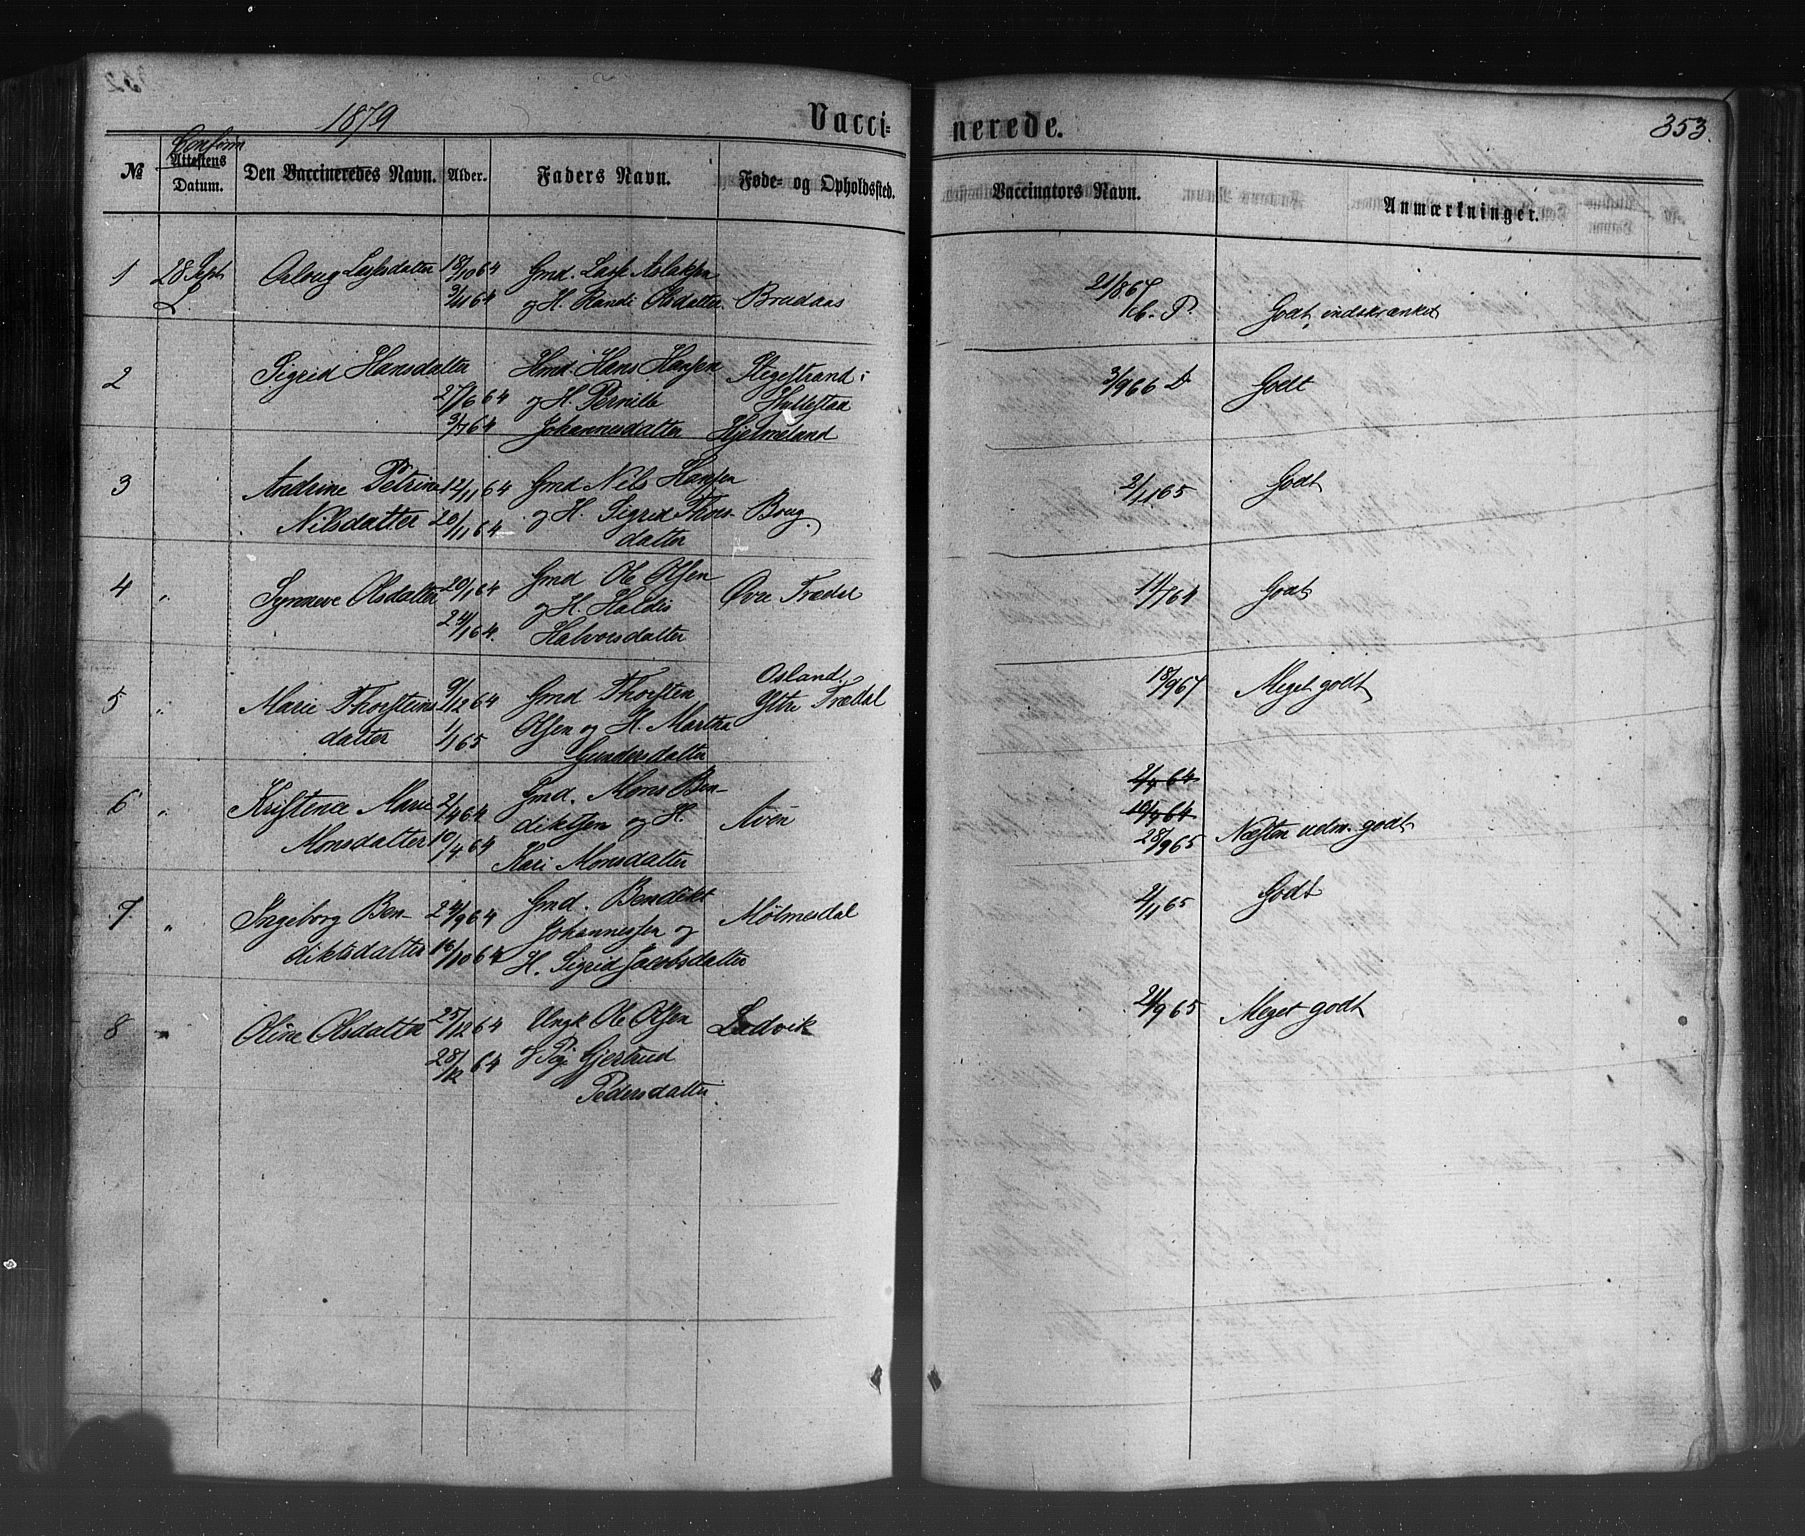 1879
Vacci= nerede.
353.
Confirm
№ Attestens Datum. Den Vaccineredes Navn. Alder. Faders Navn. Føde- og Opholdssted. Vaccinators Navn. Anmærkninger.
1 28 Sept Aslaug Lassesdatter 18/10 64 Gmd. Lasse Aslaksen 21/8 67
L. 3/11 64 og H. Randi Olsdatter Bredaas Godt, indskrænket
2 Sigrid Hansdatter Hmd. Hans Hansen Stegestrand i 3/9 66 D Godt
27/6 64 og H. Pernille Hyllestad
3/7 64 Johannesdatter Hjelmeland
3 Andrine Petrine 12/11 64 Gmd Nils Hansen 2/11 65 Godt
Nilsdatter 20/11 64 og H. Sigrid Thores- Boug
datter
4 " Synneve Olsdatter 20/1 64 Gmd Ole Olsen Øvre Trædal 14/7 64 Godt
24/1 64. og H. Haldis
Halvorsdatter
Osland,
5 " Marie Thorsteins 9/12 64 Gmd Thorsten Ytre Trædal 18/9 67 Meget godt
datter 1/1 65 Olsen og H. Martha
Gundersdatter
2/4 64
6 " Kristence Marie 2/4 64 Gmd. Mons Ben- 10/4 64
Monsdatter 10/4 64 diktsen og H. Aven 28/9 65 Næsten udm. godt
Kari Monsdatter
7 " Ingeborg Ben- 24/9 64 Gmd. Bendikt Mølmesdal 2/11 65 Godt
diktsdatter 16/10 64 Johannessen og
H. Sigrid Jacobsdatter
8 " Oline Olsdatter 25/12 64 Ungk Ole Olsen Ladvik 21/9 65 Meget godt
28/12 64 & Pige Gjertrud
Pedersdatter.